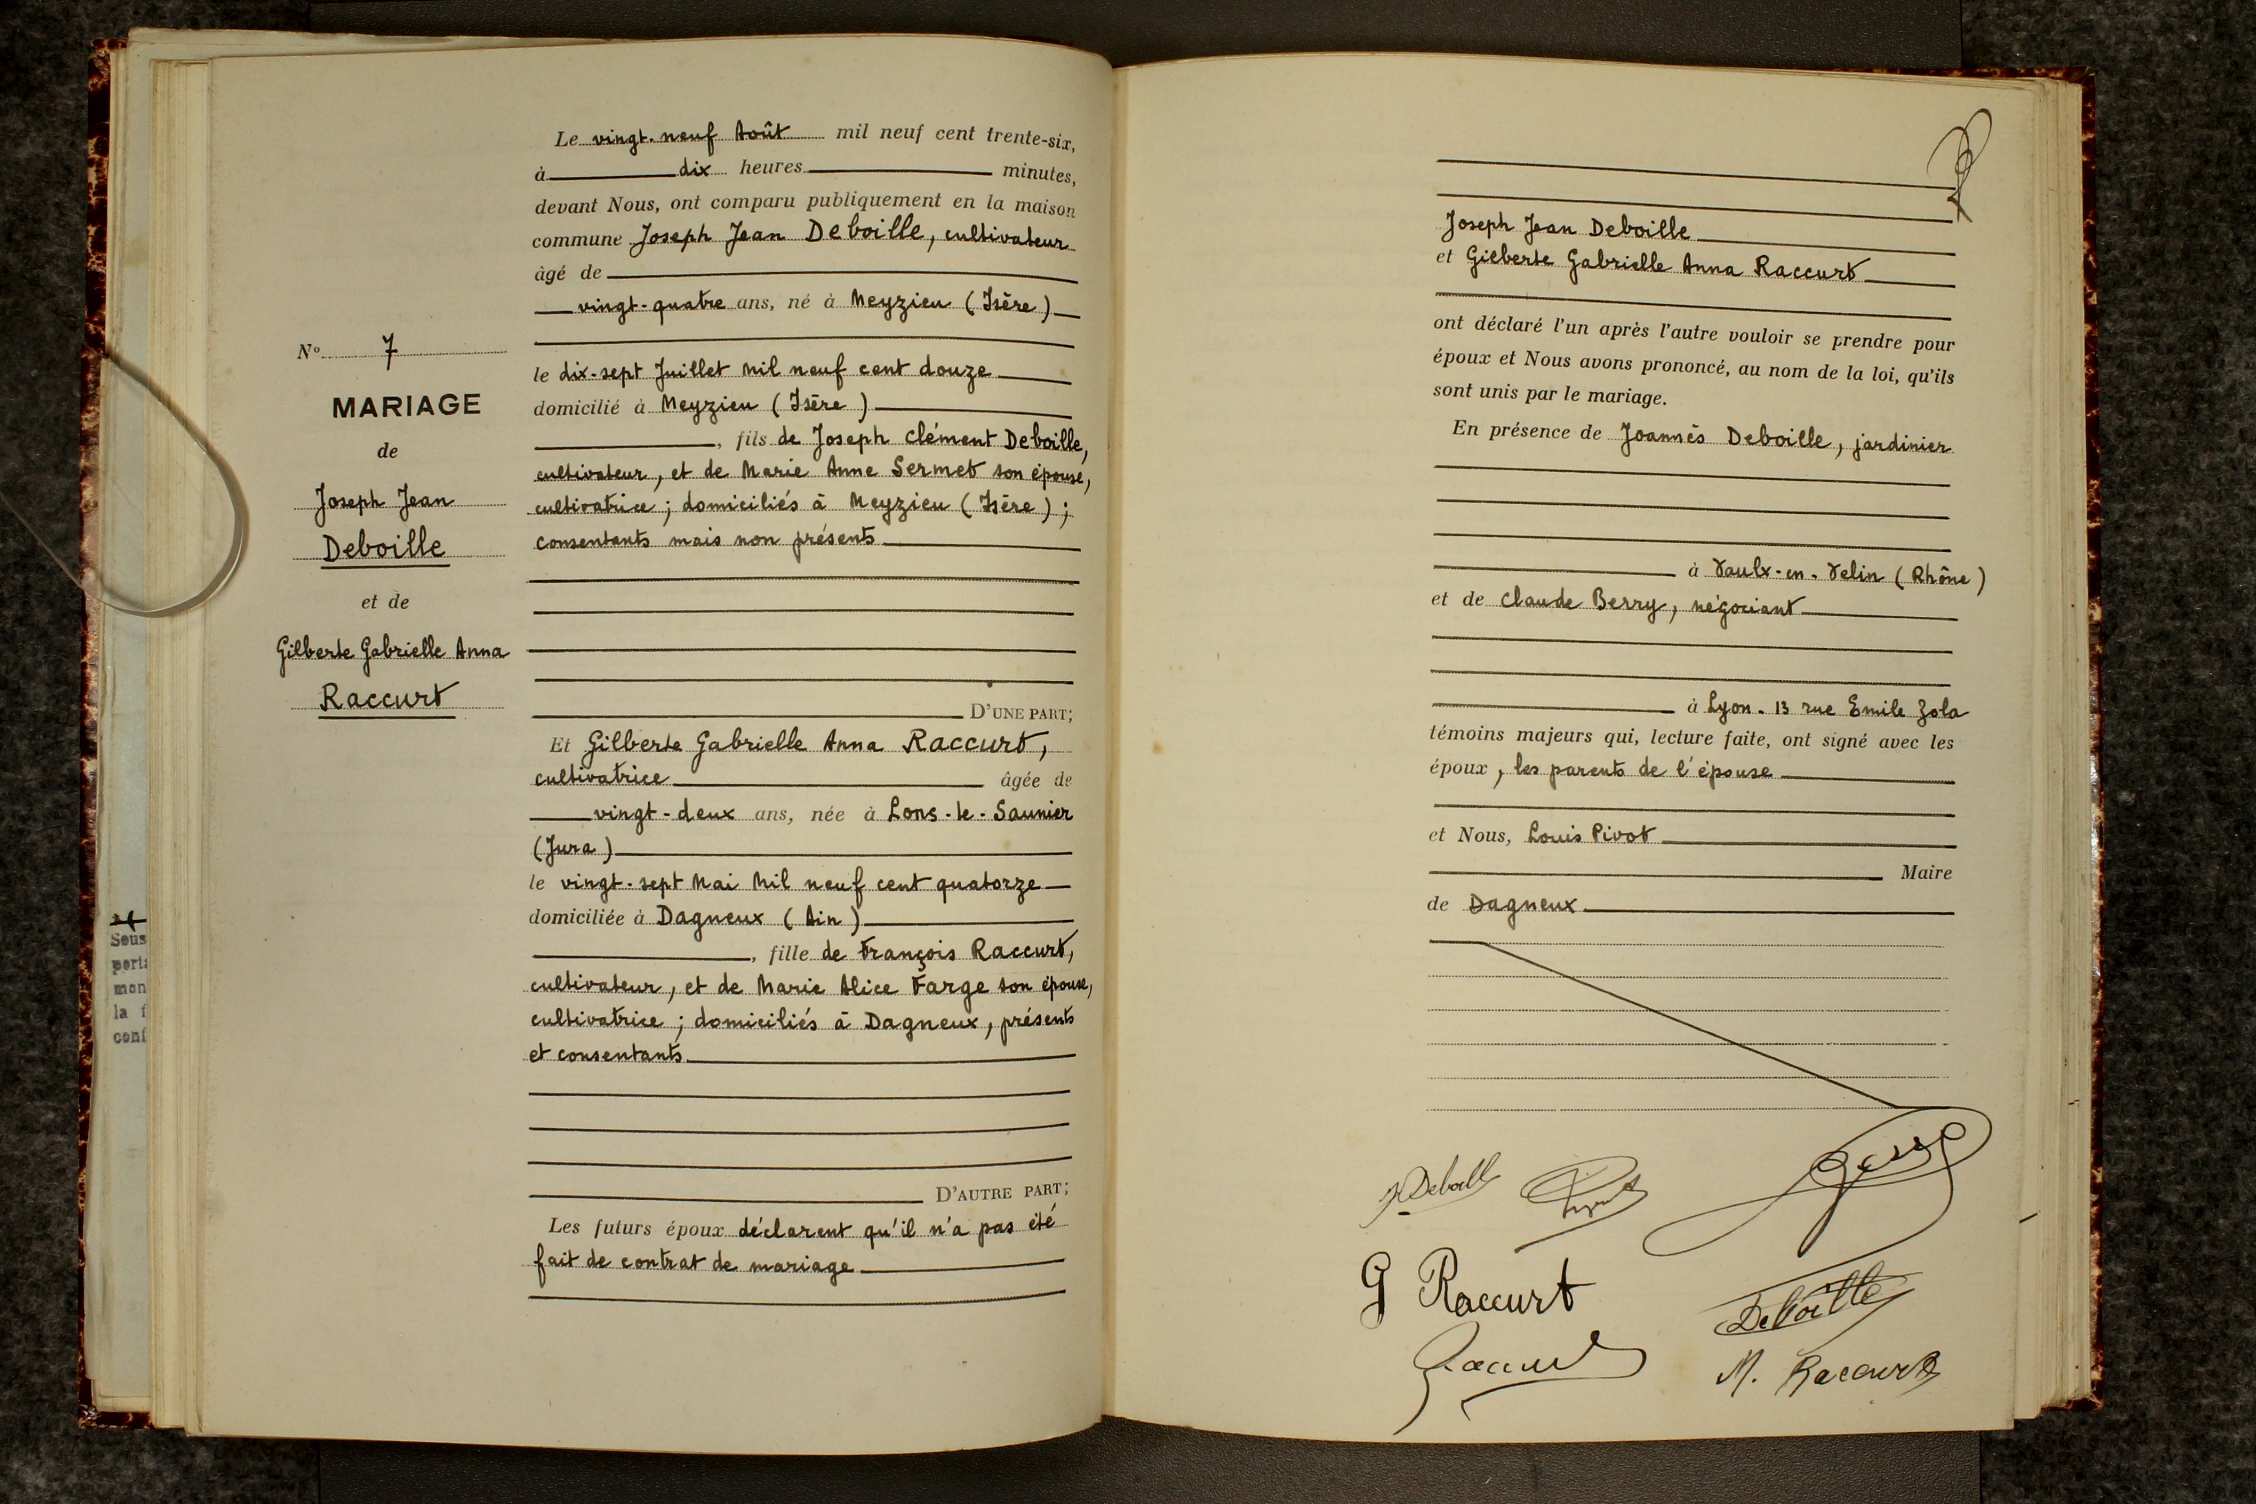 Le vingt-neuf Août mil neuf cent trente-six,
à dix heures minutes,
devant Nous, ont comparu publiquement en la maison
commune Joseph Jean Deboille, cultivateur
âgé de
vingt-quatre ans, né à Meyzieu (Isère)
le dix-sept Juillet mil neuf cent douze
domicilié à Meyzieu (Isère)
, fils de Joseph Clément Deboille,
cultivateur, et de Marie Anne Sermet son épouse,
cultivatrice; domiciliés à Meyzieu (Isère);
consentants mais non présents
D'UNE PART;
Et Gilberte Gabrielle Anna Raccurt,
cultivatrice âgée de
vingt-deux ans, née à Lons-le-Saunier
(Jura)
le vingt-sept Mai mil neuf cent quatorze
domiciliée à Dagneux (Ain)
, fille de François Raccurt,
cultivateur, et de Marie Alice Farge son épouse,
cultivatrice; domiciliés à Dagneux, présents
et consentants
D'AUTRE PART;
Les futurs époux déclarent qu'il n'a pas été
fait de contrat de mariage
Nº 7
MARIAGE
de
Joseph Jean
Deboille
et de
Gilberte Gabrielle Anna
Raccurt
Sous
mon
la f
Joseph Jean Deboille
et Gilberte Gabrielle Anna Raccurt
ont déclaré l'un après l'autre vouloir se prendre pour
époux et Nous avons prononcé, au nom de la loi, qu'ils
sont unis par le mariage.
En présence de Joannès Deboille, jardinier
à Vaulx-en-Velin (Rhône)
et de Claude Berry, négociant
à Lyon. 13 rue Emile Zola
témoins majeurs qui, lecture faite, ont signé avec les
époux, les parents de l'épouse
et Nous, Louis Pivot
Maire
de Dagneux
J Deboille
Pivot
Berry
G Raccurt
Deboille
Raccurt
M. Raccurt